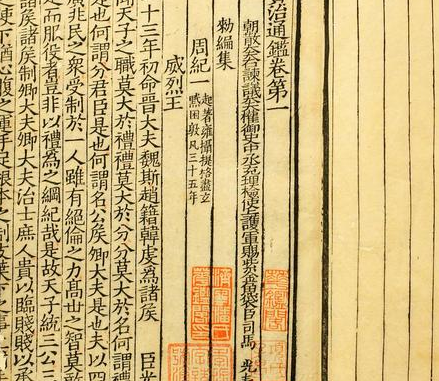 治通鑑卷第一
朝散大夫右諫議大夫權御史中丞充理檢使上護軍賜紫金魚袋臣司馬 光奉
勑編集
周紀一 起著雍攝提格盡玄
黓困敦凡三十五年
威烈王
十三年初命晉大夫魏斯趙籍韓虔爲諸侯 臣光
聞天子之職莫大於禮禮莫大於分分莫大於名何謂禮
是也何謂分君臣是也何謂名公侯卿大夫是也夫以四
廣兆民之衆受制於一人雖有絕倫之力高世之智莫敢
之而服役者豈非以禮爲之綱紀哉是故天子統三公三
諸侯諸侯制卿大夫卿大夫治士庶人貴以臨賤賤以承
之使下猶心腹之運手足根本之制支葉下之事